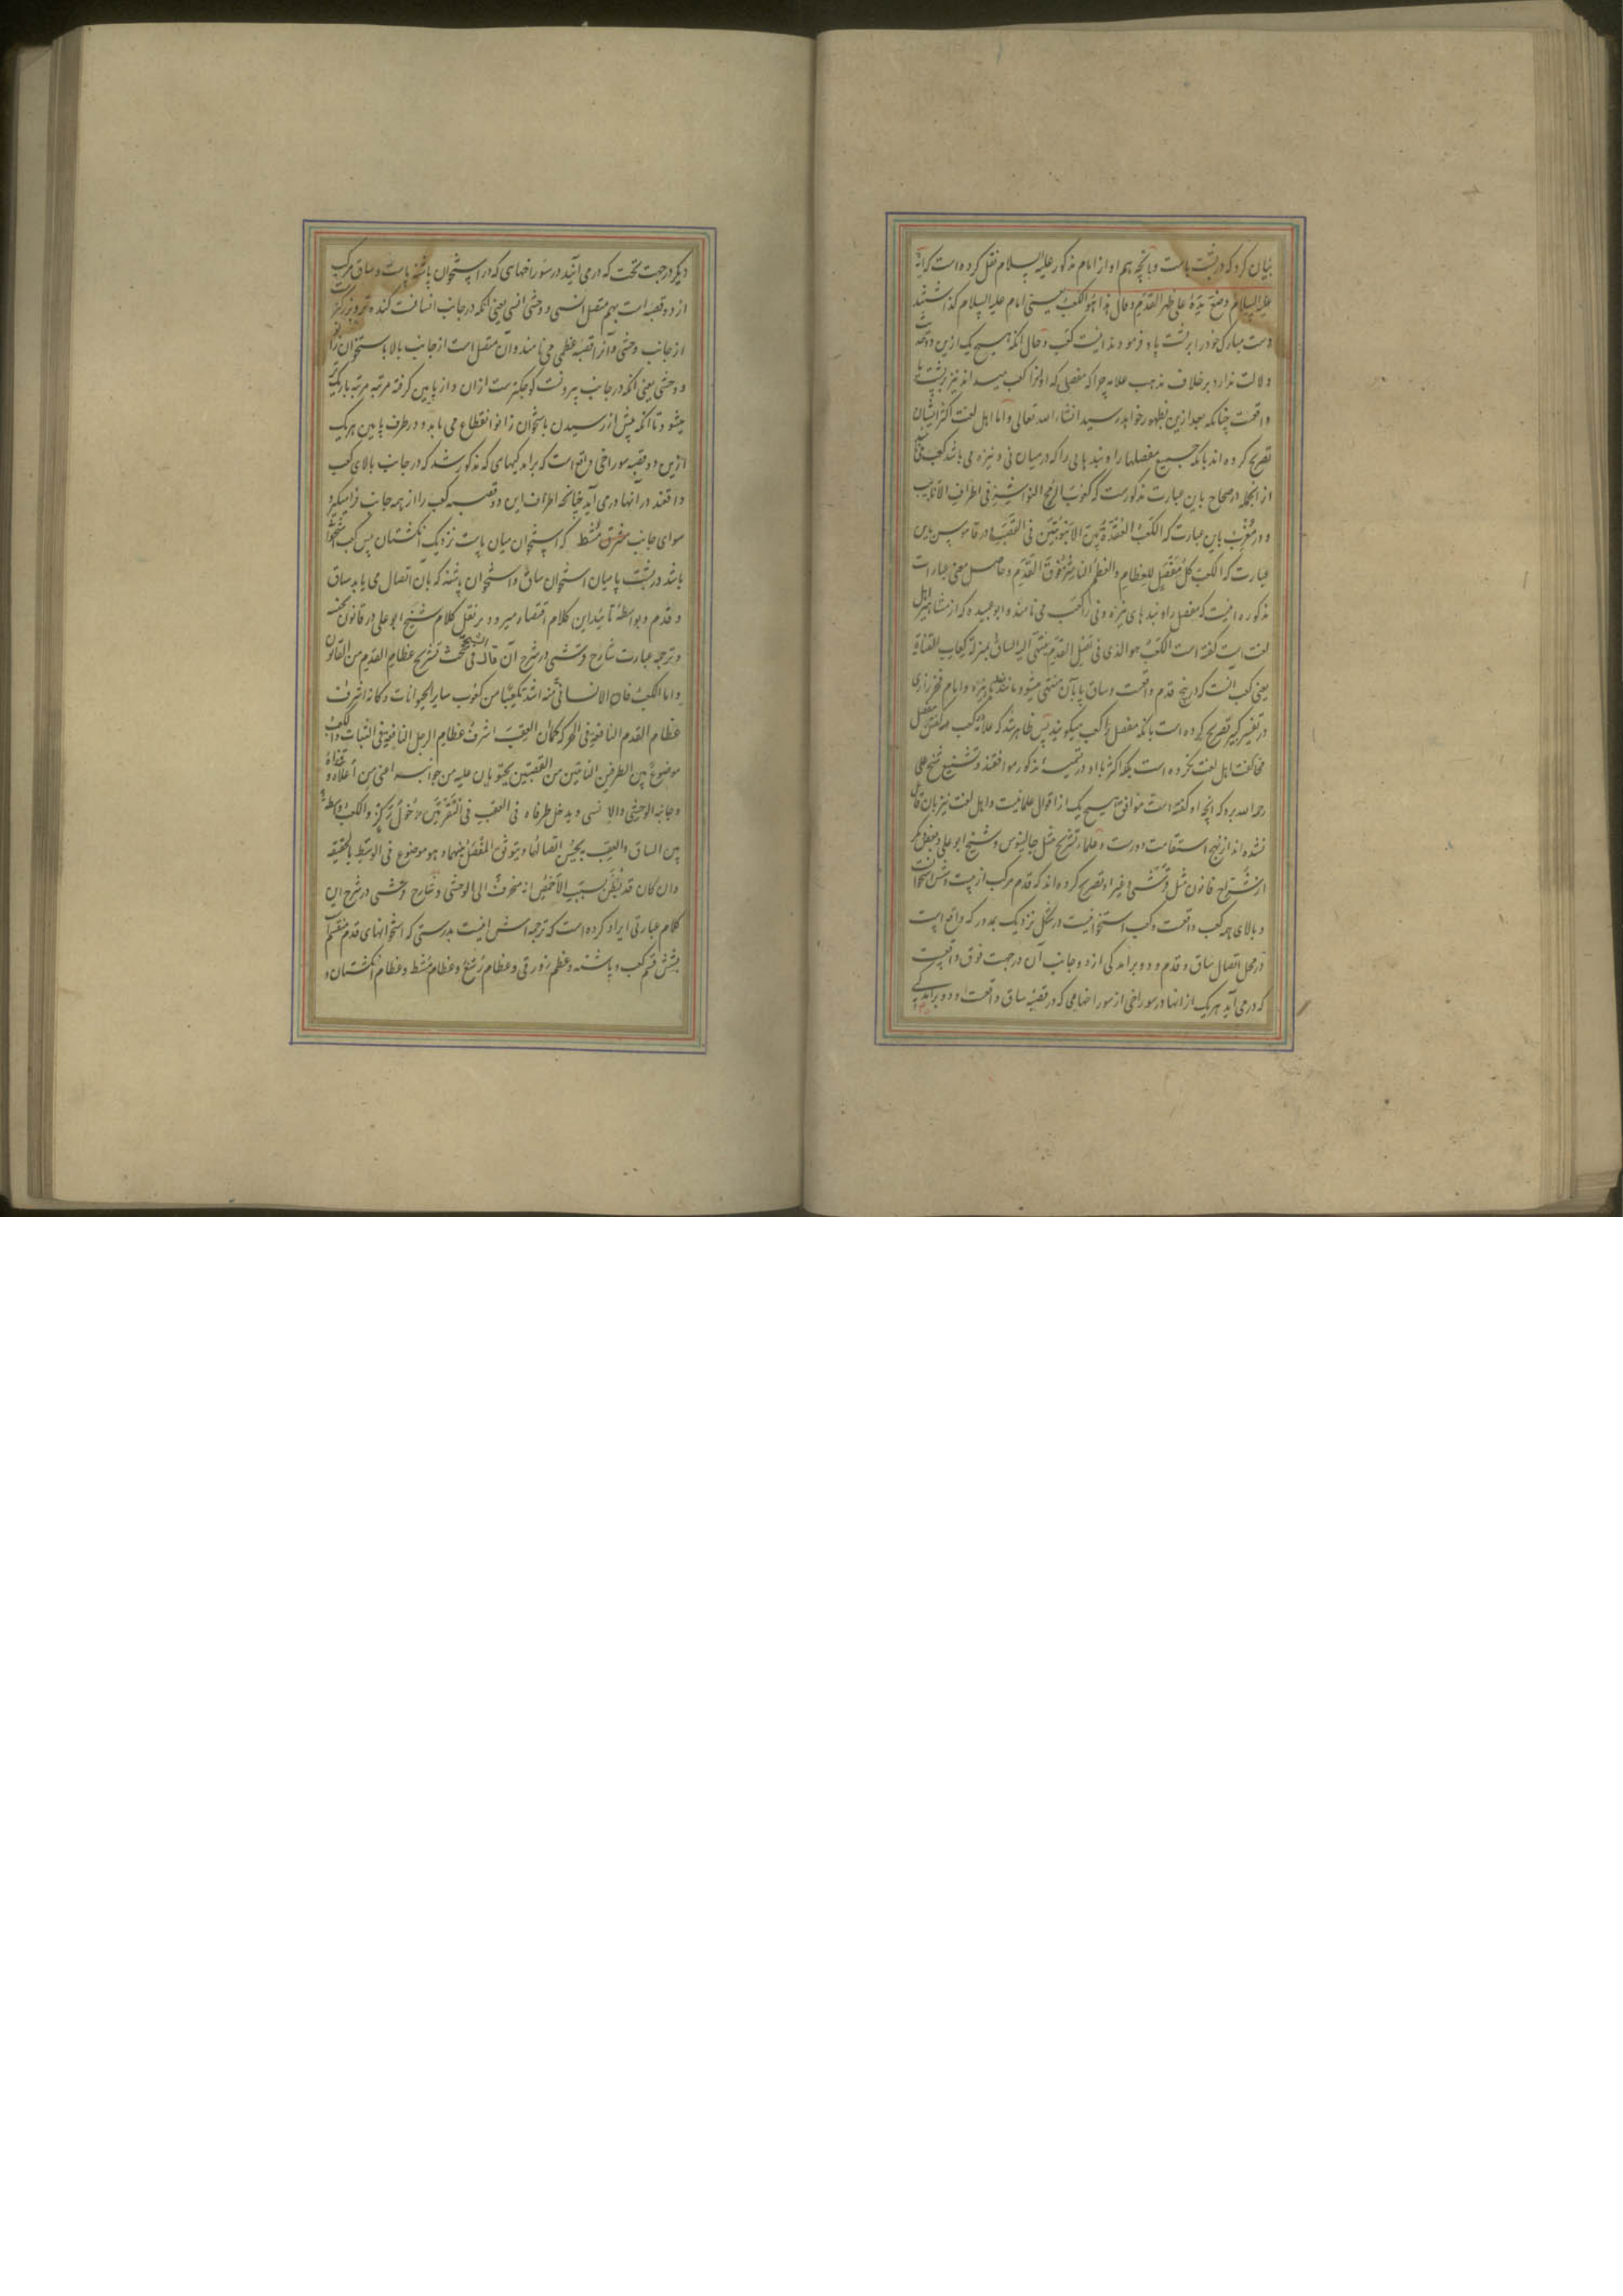 بیان کرد که در پشت پاست و بآنچه هم او از امام مذکور علیه السلام نقل کرده است که انه
علیه السلام وضع یده علی ظهر القدم و قال هذا هو الکعب یعنی امام علیه السلام گذاشتند
دست مبارک خود را بر پشت پا و فرمودند اینست کعب و حال آنکه هیچ یک ازین دو
دلالت ندارد بر خلاف مذهب علامه چرا که مفصلی که او آنرا کعب میداند نیز بر پشت پا
واقعست چنانکه بعد ازین بظهور خواهد رسید انشاء الله تعالی و اما اهل لغت اکثر ایشان
تصریح کرده اند بآنکه جمیع مفصلها را و بندهایی را که در میان نی و نیزه می باشد کعب
از آنجمله در صحاح باین عبارت مذکورست که کعوب الرمح النواشز فی اطراف الانابیب
و در مغرب باین عبارت که الکعب العقدة بین الانبوبتین فی القصب و در قاموس باین
عبارت که الکعب کل مفصل للعظام و العظم الناشز فوق القدم و حاصل معنی عبارات
مذکوره اینست که مفصل را و بندهای نیزه و نی را کعب می نامند و ابو عبیده که از مشاهیر اهل
لغت است گفته است الکعب هو الذی فی اصل القدم ینتهی الیه الساق بمنزلة کعاب القناة
یعنی کعب آنست که در بیخ قدم واقعست و ساق پا بآن منتهی میشود مانند نیزه و امام فخر رازی
در تفسیر کبیر تصریح کرده است بآنکه مفصل را کعب میگویند پس ظاهر شد که علامه
مخالفت اهل لغت نکرده است بلکه اکثر با او در تسمیه مذکور موافقند و تشنیع شیخ علی
رحمه الله برو که آنچه او گفته است موافق هیچ یک از اقوال علما نیست و اهل لغت نیز بآن قایل
نشده اند از نهج استقامت دورست و علماء تشریح مثل جالینوس و شیخ ابو علی و بعضی دیگر
از شراح قانون مثل قرشی و غیر او تصریح کرده اند که قدم مرکب از بیست و شش استخوانست
و بالای همه کعب واقعست و کعب استخوانیست در شکل نزدیک بمدور که واقع است
در محل اتصال ساق و قدم و دو برآمدگی از دو جانب آن در جهت فوق واقعست
که در می آید هر یک از آنها در سوراخی از سوراخهایی که در قصبه ساق واقعست و دو برآمدگی
دیگر در جهت تحت که در می آیند در سوراخهای که در استخوان پاشنه پاست و ساق مرکب
از دو قصبه است بهم متصل انسی و وحشی انسی یعنی آنکه در جانب انسانست کنده تر و بزرگتر
از جانب وحشی و آنرا قصبه عظمی می نامند و آن متصل است از جانب بالا باستخوان زانو
و وحشی یعنی آنکه در جانب بیرونست کوچکترست ازان و از پایین گرفته مرتبه مرتبه باریک
میشود تا آنکه پیش از رسیدن باستخوان زانو انقطاع می یابد و در طرف پایین هر یک
ازین دو قصبه سوراخی واقع است که برآمدگیهای که مذکور شد که در جانب بالای کعب
واقعند در آنها در می آید چنانچه اطراف این دو قصبه کعب را از همه جانب فرا میگیرد
سوای جانب مشط که استخوان میان پاست نزدیک انگشتان پس کعب استخوانی
باشد در پشت پا میان استخوان ساق و استخوان پاشنه که بآن اتصال می یابد ساق
و قدم و بواسطه تأیید این کلام اقتصار میرود بر نقل کلام شیخ ابو علی در قانون
و ترجمه عبارت شارح قرشی در شرح آن قال الشیخ فی بحث تشریح عظام القدم من القانون
و اما الکعب فان الانسانی منه اشد تکعبا من کعوب سایر الحیوانات و کانه اشرف
عظام القدم النافعة فی الحرکة کما ان العقب اشرف عظام الرجل النافعة فی الثبات و الکعب
موضوع بین الطرفین الناتیین من القصبتین یحتویان علیه من جوانبه اعنی من اعلاه و قفاه
و جانبیه الوحشی و الانسی و یدخل طرفاه فی العقب فی النقرتین دخول رکز و الکعب واسطة
بین الساق و العقب به یحسن اتصالهما و یتوثق المفصل بینهما و هو موضوع فی الوسط بالحقیقه
و ان کان قد یظن بسبب الاخمص انه منحرف الی الوحشی و شارح قرشی در شرح این
کلام عبارتی ایراد کرده است که ترجمه اش اینست بدرستی که استخوانهای قدم منقسم
بشش قسم کعب و پاشنه و عظم زورقی و عظام رسغ و عظام مشط و عظام انگشتان و